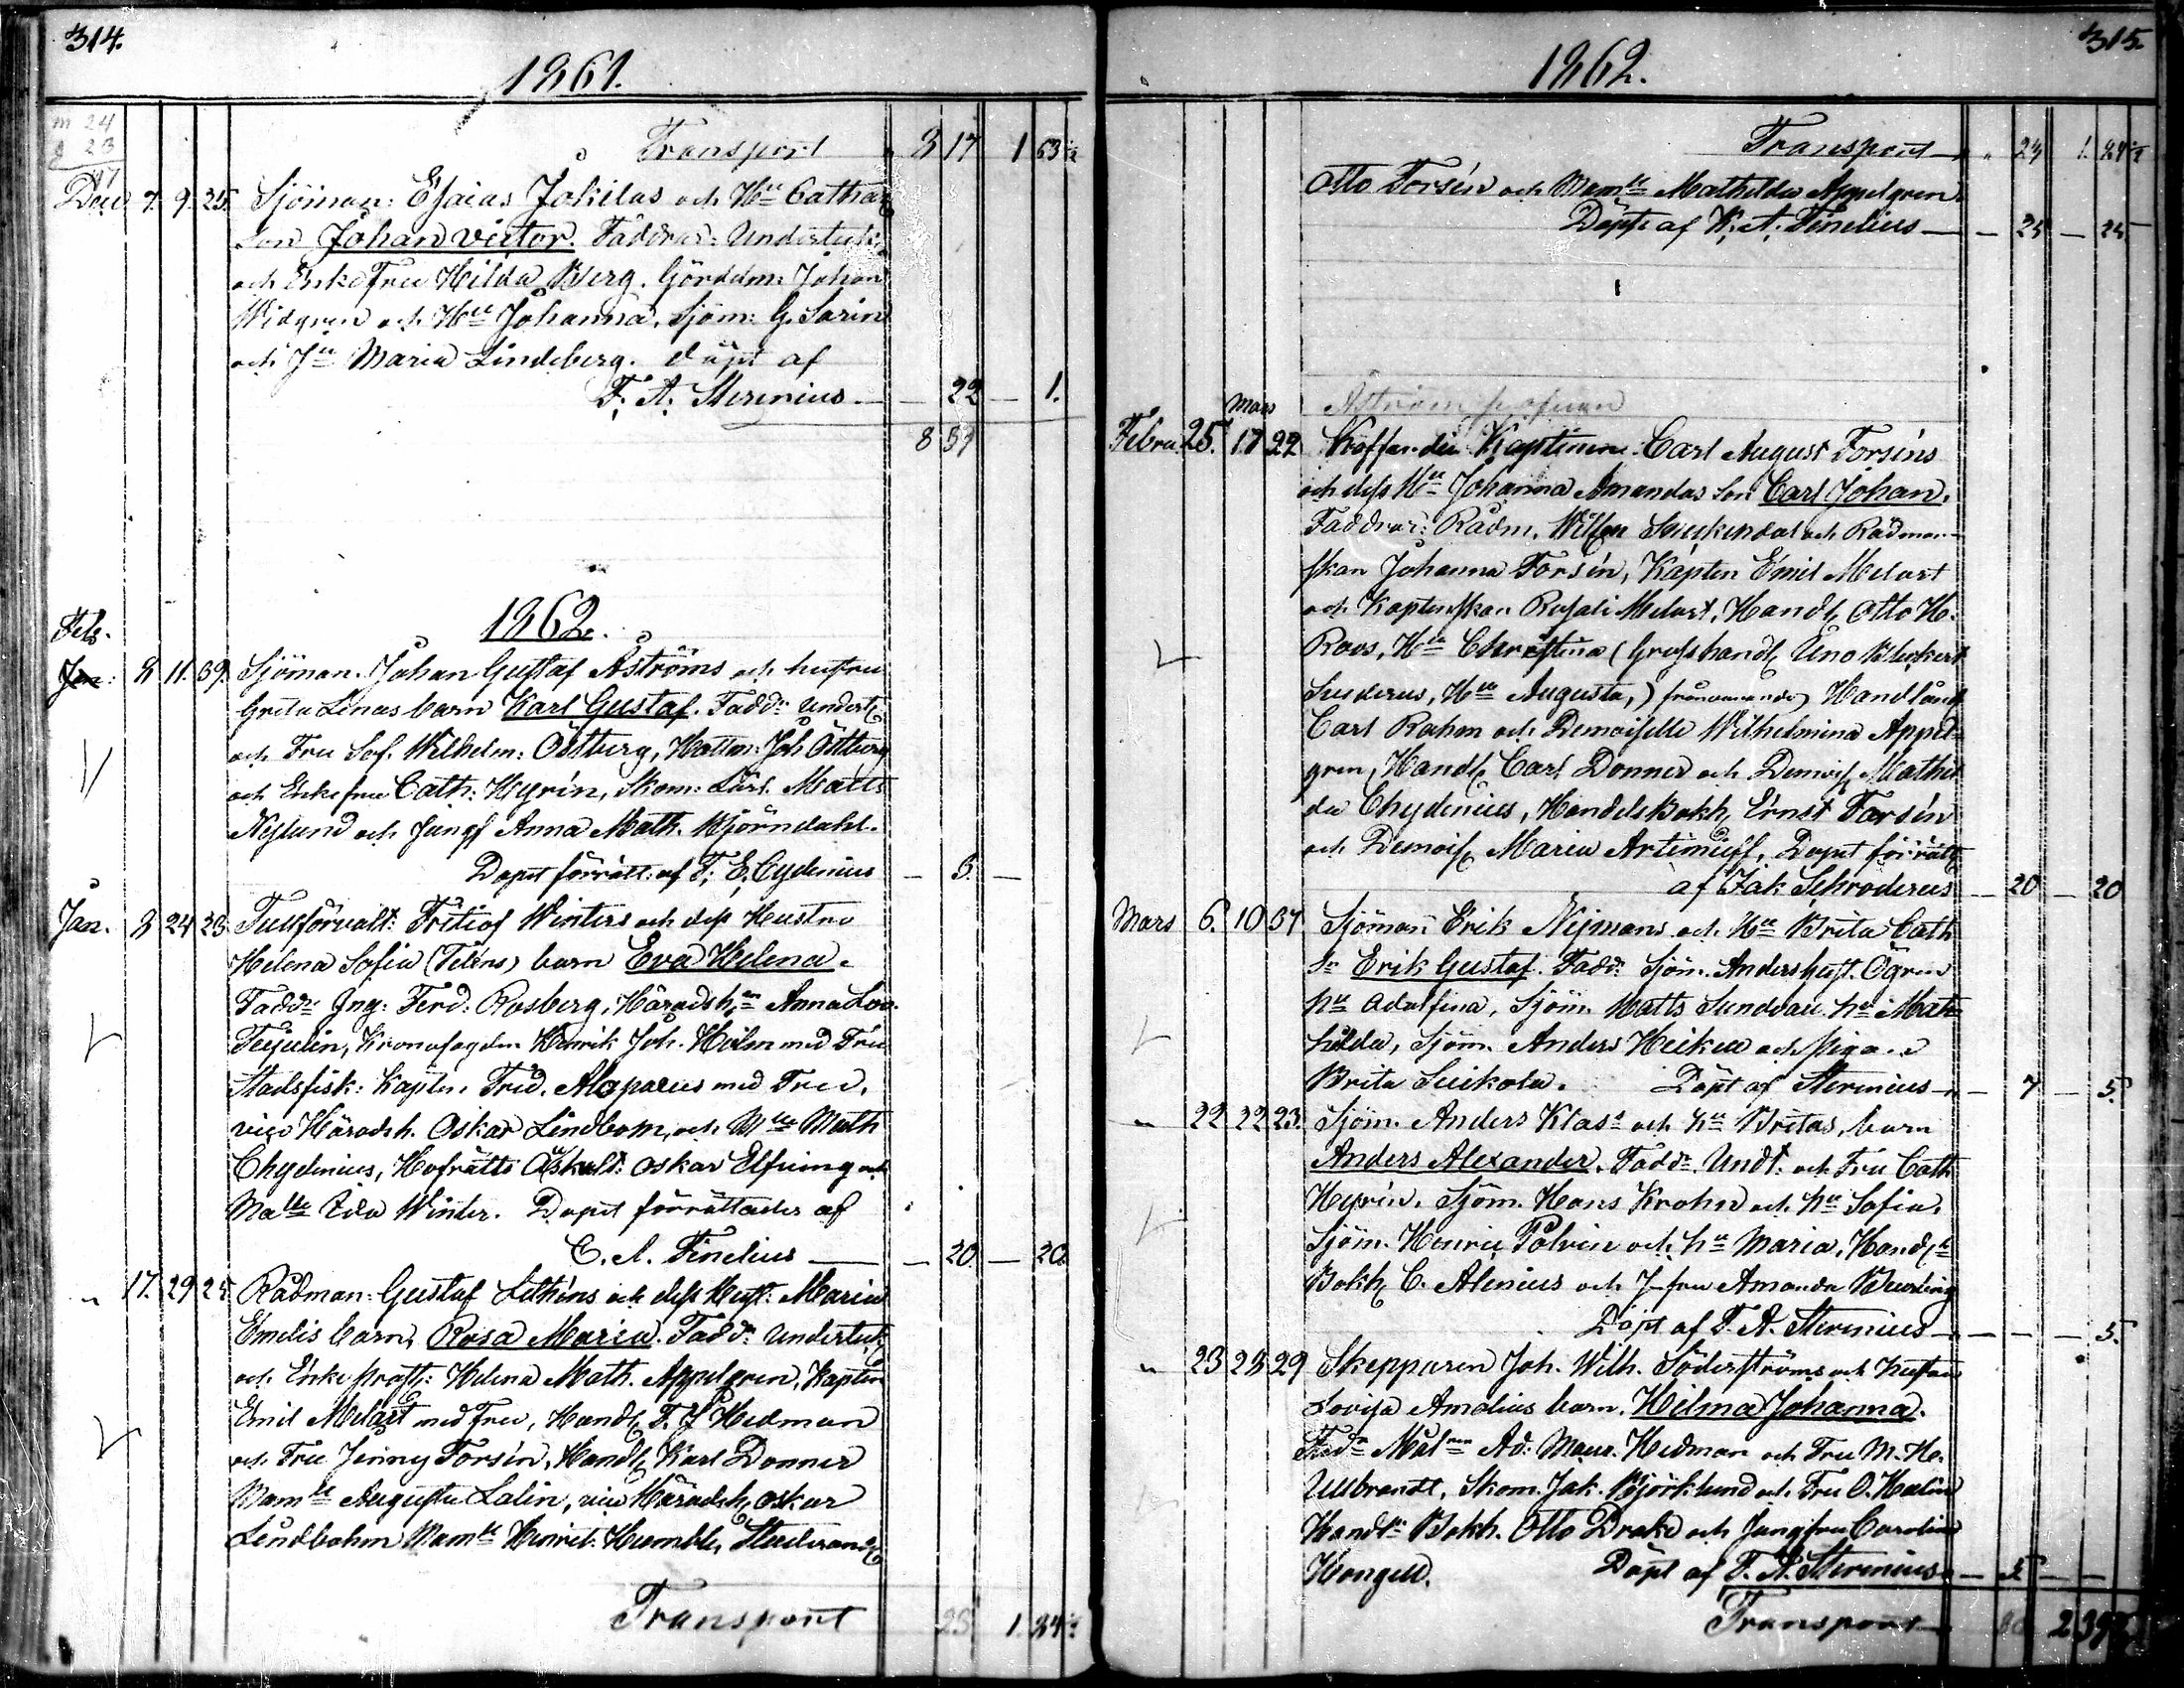 314.
1861.
m 24
g 23
47
Transport 8 17 1 63
Dec 7. 9. 25. Sjöman: Esaias Jokilas och Hu Cathar
son Johan Victor. Faddrar: Undertek:
och Enkefru Hilda Berg. Gördelm: Johan
Widgren och Hu Johanna, Sjöm: G. Sarin
och Jfu Maria Lindeberg. döpt af
F. A. Stenius — 22 — 1.
8 59
1862.
Feb.
Jan: 8 11. 39. Sjöman. Johan Gustaf Åströms och hustru
Greta Lenas barn Karl Gustaf. Faddr: Undert:
och Fru Sof. Wilhelm: Östberg, Hattm: Joh Östberg
och Enkefru Cath: Heyrin, Skom: Lärl. Matts
Nylund och Jungf Anna Math. Björndahl.
Dopet förrätt: af F. E. Cydenius — 5. —
Jan. 3 24 23 Tullförvalt: Fritiof Winters och dess Hustru
Helena Sofia (Teléns) barn Eva Helena.
Faddr: Ing: Ferd: Rosberg, Häradsh:an Anna Lov.
Kronofogden Henrik Joh. Holm med Fru
Stadsfisk: Kapten Frid. Alopaeus med Fru,
vice Häradsh. Oskar Lindbom, och Mlle Math
Chydenius, Hofrätts Auskult: Oskar Elfving och
Malle Ida Winter. Dopet förrättades af
C. A. Finelius — 20 — 20.
" 17. 29 25 Rådman: Gustaf Lithéns och dess Hust: Maria
Emelis barn, Rosa Maria. Faddr: Undertek:
och Enkeprostj: Helena Math. Appelgren, Kapten
Emil Melart med Fru, Handl: F. J Hedman
och Fru Jenny Forsén, Handl: Karl Donner
Mamll Augusta Lalin, vice Häradsh: Oskar
Lindbohm Mamll Henriet: Humble, Studerand:
Transport 25 1. 84
315.
1862.
Transport — 25 1. 84
Otto Forsén och Mamll Mathilda Appelgren
Döpt af K. A. Finelius — 25 — 25
Mars
Febru 25. 17 22 Kofferdie Kaptenen Carl August Forséns
och dess Hu Johanna Amandas son Carl Johan.
Faddrar: Rådm. Wilhm Snickendal och Rådman-
skan Johanna Forsén, Kapten Emil Melart
och Kaptenskan Rosali Melart, Handl: Otto H.
Roos, Hu Christina (Grosshandl: Uno Bluckert
Hu Augusta,) frånvarande) Handland
Carl Rahm och Demoiselle Wilhelmina Appel-
gren, Handl: Carl Donner och Demois: Mathil
da Chydenius, Handels Bokh: Ernst Forsén
och Demois: Maria Artimieff, Dopet förrätt:
af Jak Schroderus — 20 — 20
Mars 6. 10 37 Sjöman Erik Nijmans och Hu Brita Cath
Sn Erik Gustaf. Fadd: Sjöm. Anders Gust. Ögren
hu Adolfina, Sjöm. Matts Hu Mat-
hilda, Sjöm. Anders Heikka och pigan
Brita Suikola. Döpt af Stenius — 7 — 5.
" 22 22 23. Sjöm. Anders Klass och hu Britas, barn
Anders Alexander. Faddr. Undt: och Fru Cath
Heyrin. Sjöm. Hans Krohn och hu Sofia,
Sjöm. Henric Polvin och hu Maria, Handels
Bokh: C. Alenius och Jfru Amanda
Döpt af F. A. Stenius — — — 5.
" 23 25 29 Skepparen Joh. Wilh. Söderströms och hustru
Lovisa Amalias barn. Hilma Johanna.
Fadr Målren Ad: Maur. Hedman och Fru M. He.
Ullbrandt, Skom. Jak. Björklund och Fru O. Hulin
Handls Bokh. Otto Drake och Jungfru Carolina
Hongell. Döpt af F. A. Stenius — 5 —
Transport 2 39